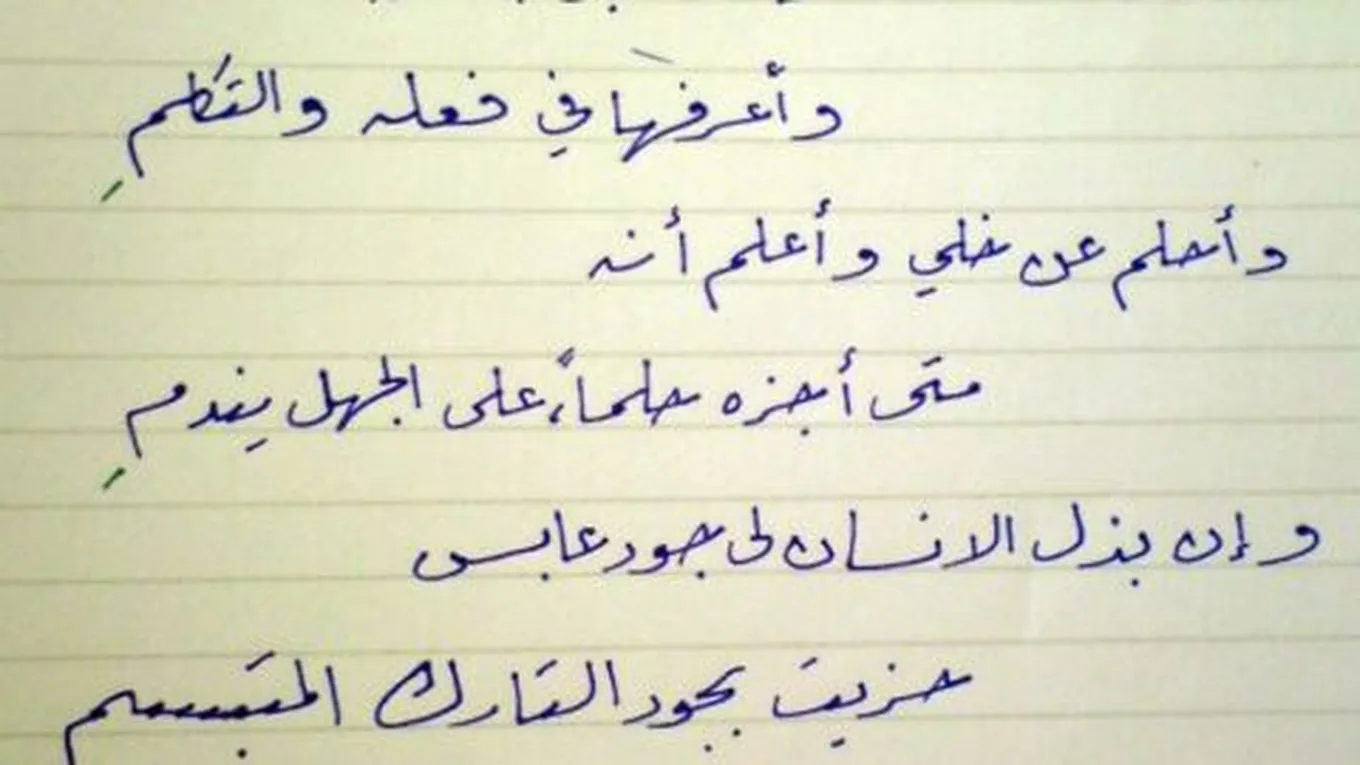 وأعرفها في فعله والتكلمِ
وأحلم عن خلي وأعلم أنه
متى أجزه حلماً، على الجهل يندمِ
وإن بذل الانسان لى جود عابس
جزيت بجود التارك المتبسم